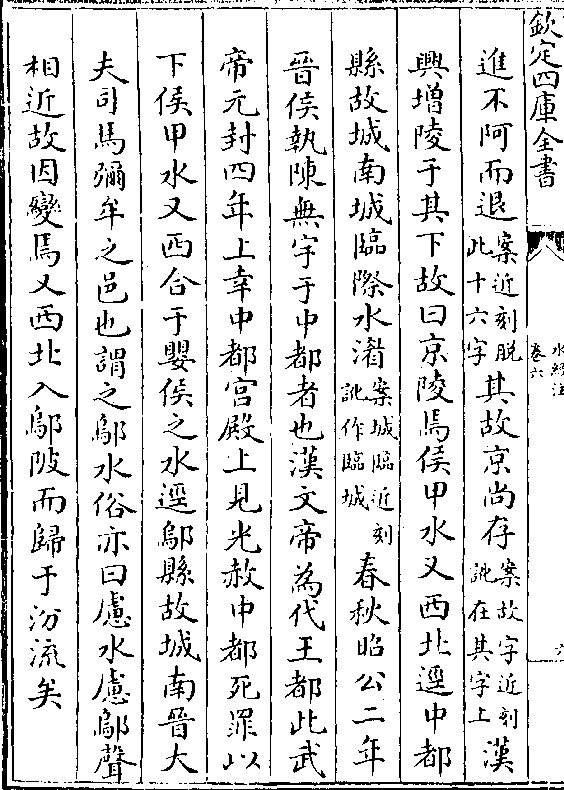 欽定四庫全書
水經注
卷六
六
進不阿而退案近刻脫此十六字其故京尚存案故字近刻訛在其字上漢
興增陵于其下故曰京陵焉侯甲水又西北逕中都
縣故城南城臨際水湝案城臨近刻訛作臨城春秋昭公二年
晉侯執陳無宇于中都者也漢文帝為代王都此武
帝元封四年上幸中都宮殿上見光赦中都死罪以
下侯甲水又西合于嬰侯之水逕鄔縣故城南晉大
夫司馬彌牟之邑也謂之鄔水俗亦曰慮水慮鄔聲
相近故因變焉又西北入鄔陂而歸于汾流矣